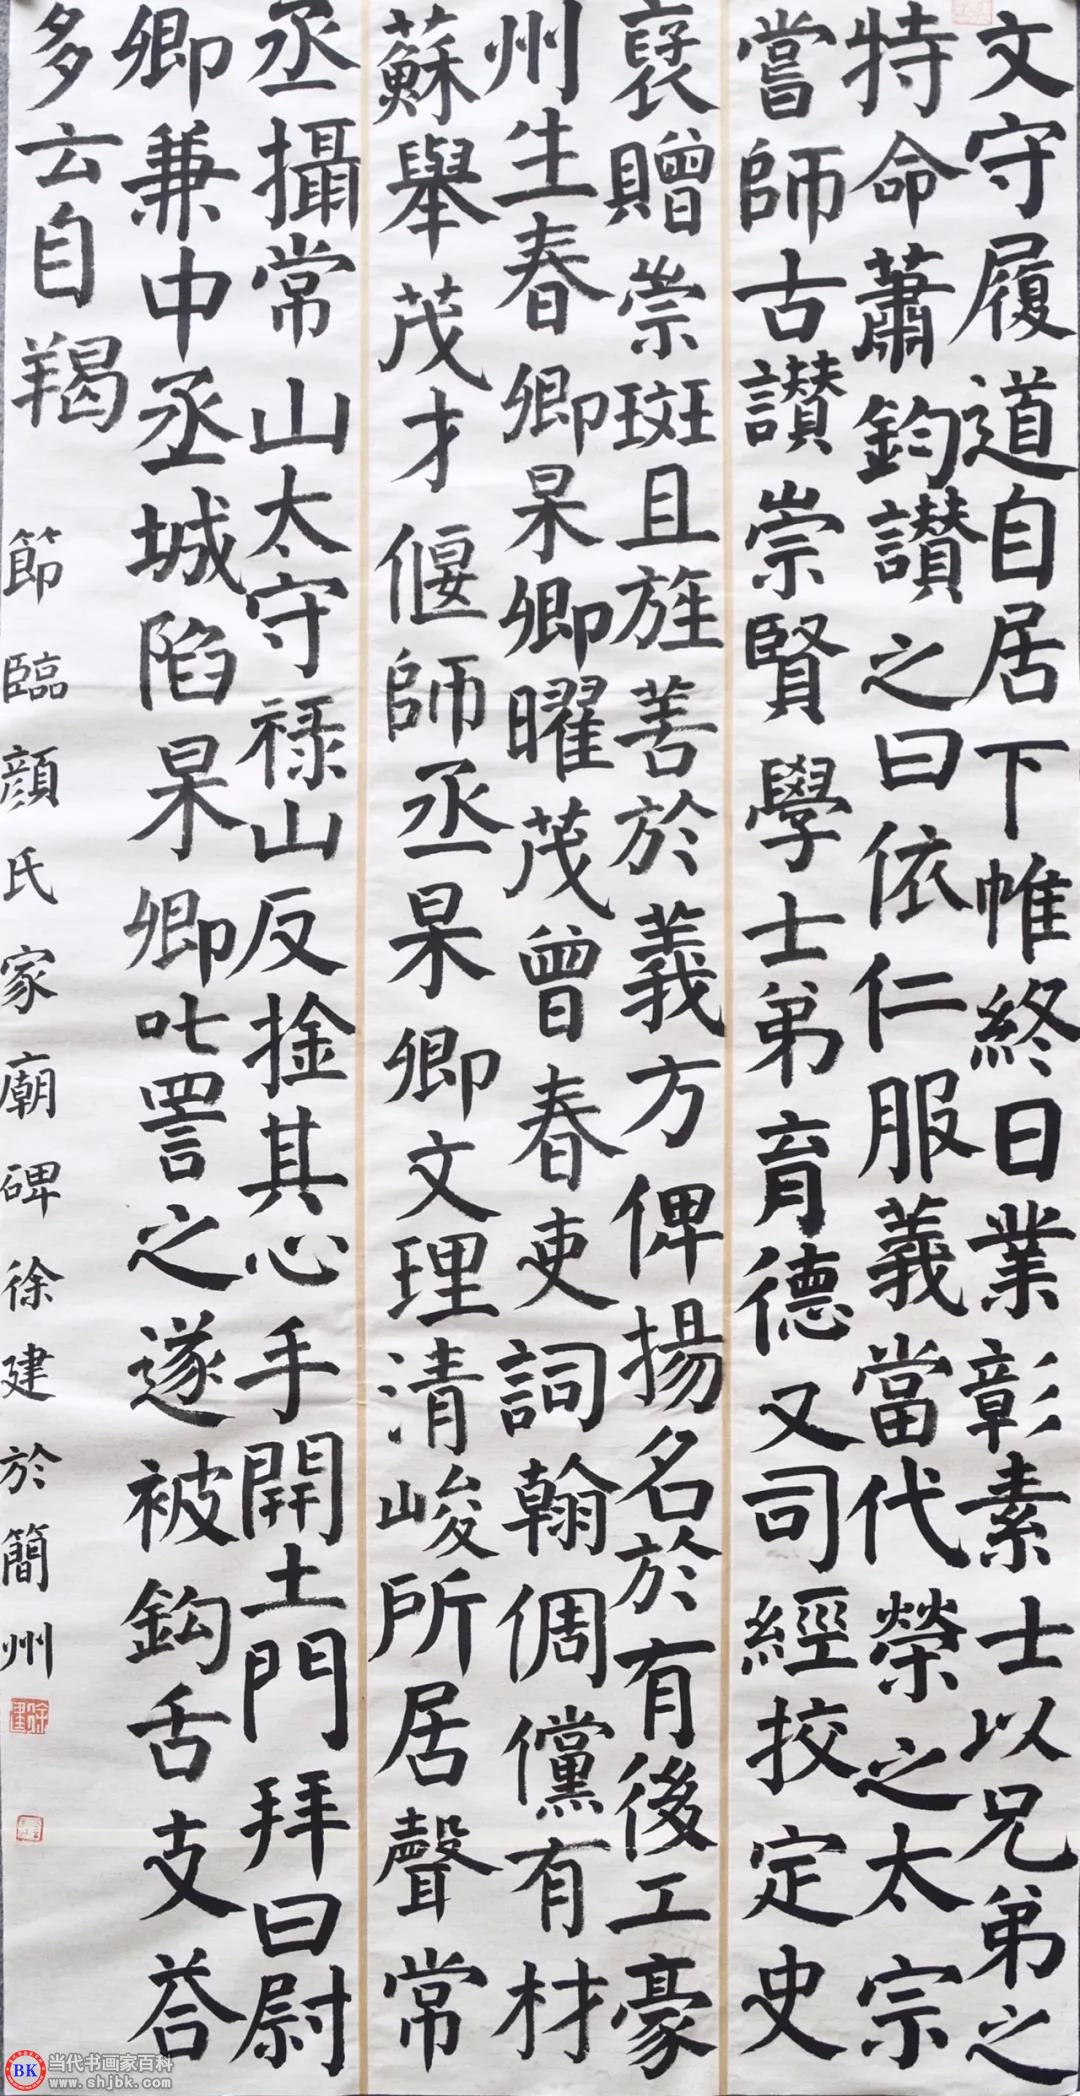 文守履道自居下帷終日業彰素士以兄弟之
特命蕭鈞讃之曰依仁服義當代榮之太宗
嘗師古讃崇賢學士弟育德又司經挍定史
裦贈崇班且旌善於義方俾揚名於有後工豪
州生春卿杲卿曜茂曾春吏詞翰倜儻有材
蘇舉茂才偃師丞杲卿文理清峻所居聲常
丞攝常山太守禄山反捡其心手開土門拜曰尉
卿兼中丞城陷杲卿叱詈之遂被鈎舌支荅
多云自羯
節臨顔氏家廟碑徐建於簡州
徐建
當代书画家百科
www.shjbk.com
BK